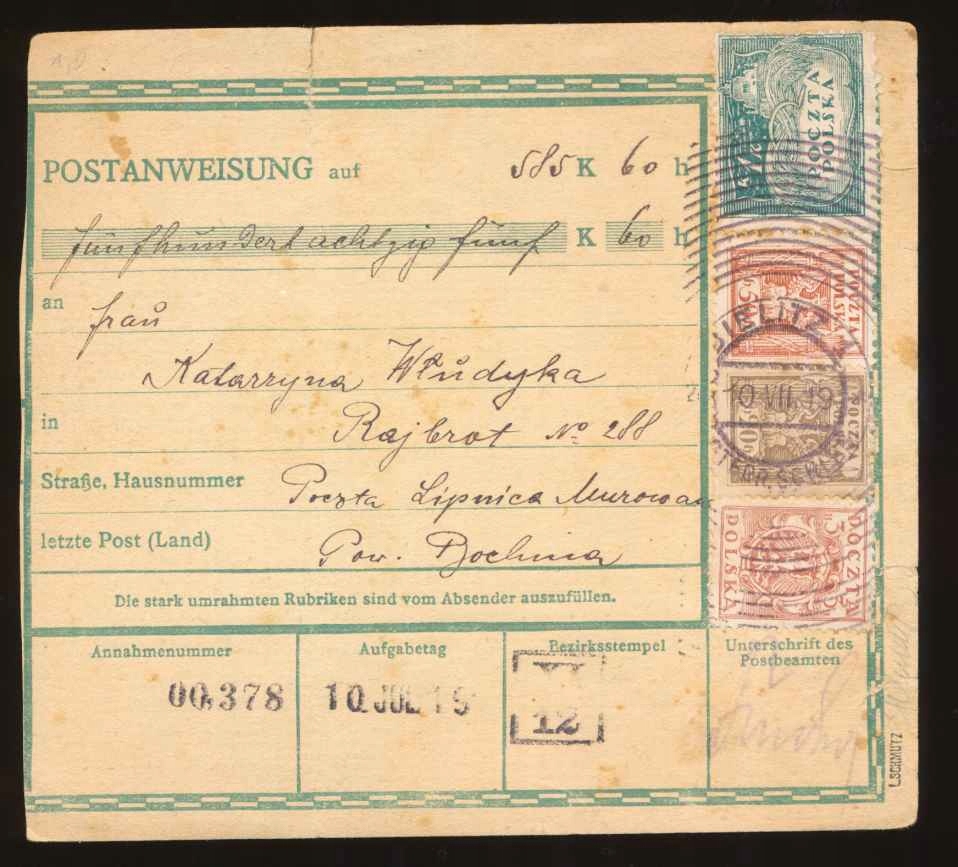 POSTANWEISUNG auf 585 K 60 h
fünfhundertachtzig fünf K 60 h
an frau
Katarzyna Włudyka
in Rajbrot № 288
Straße, Hausnummer Poczta Lipnica Murowan
letzte Post (Land) Pow. Bochnia
Die stark umrahmten Rubriken sind vom Absender auszufüllen.
Annahmenummer
00,378
Aufgabetag
10 JUL 19
Bezirksstempel
12
Unterschrift des
Postbeamten
POCZTA
POLSKA
BIELITZ 1
10 VII. 19
POCZTA
POCZTA
POLSKA
L.SCHMUTZ